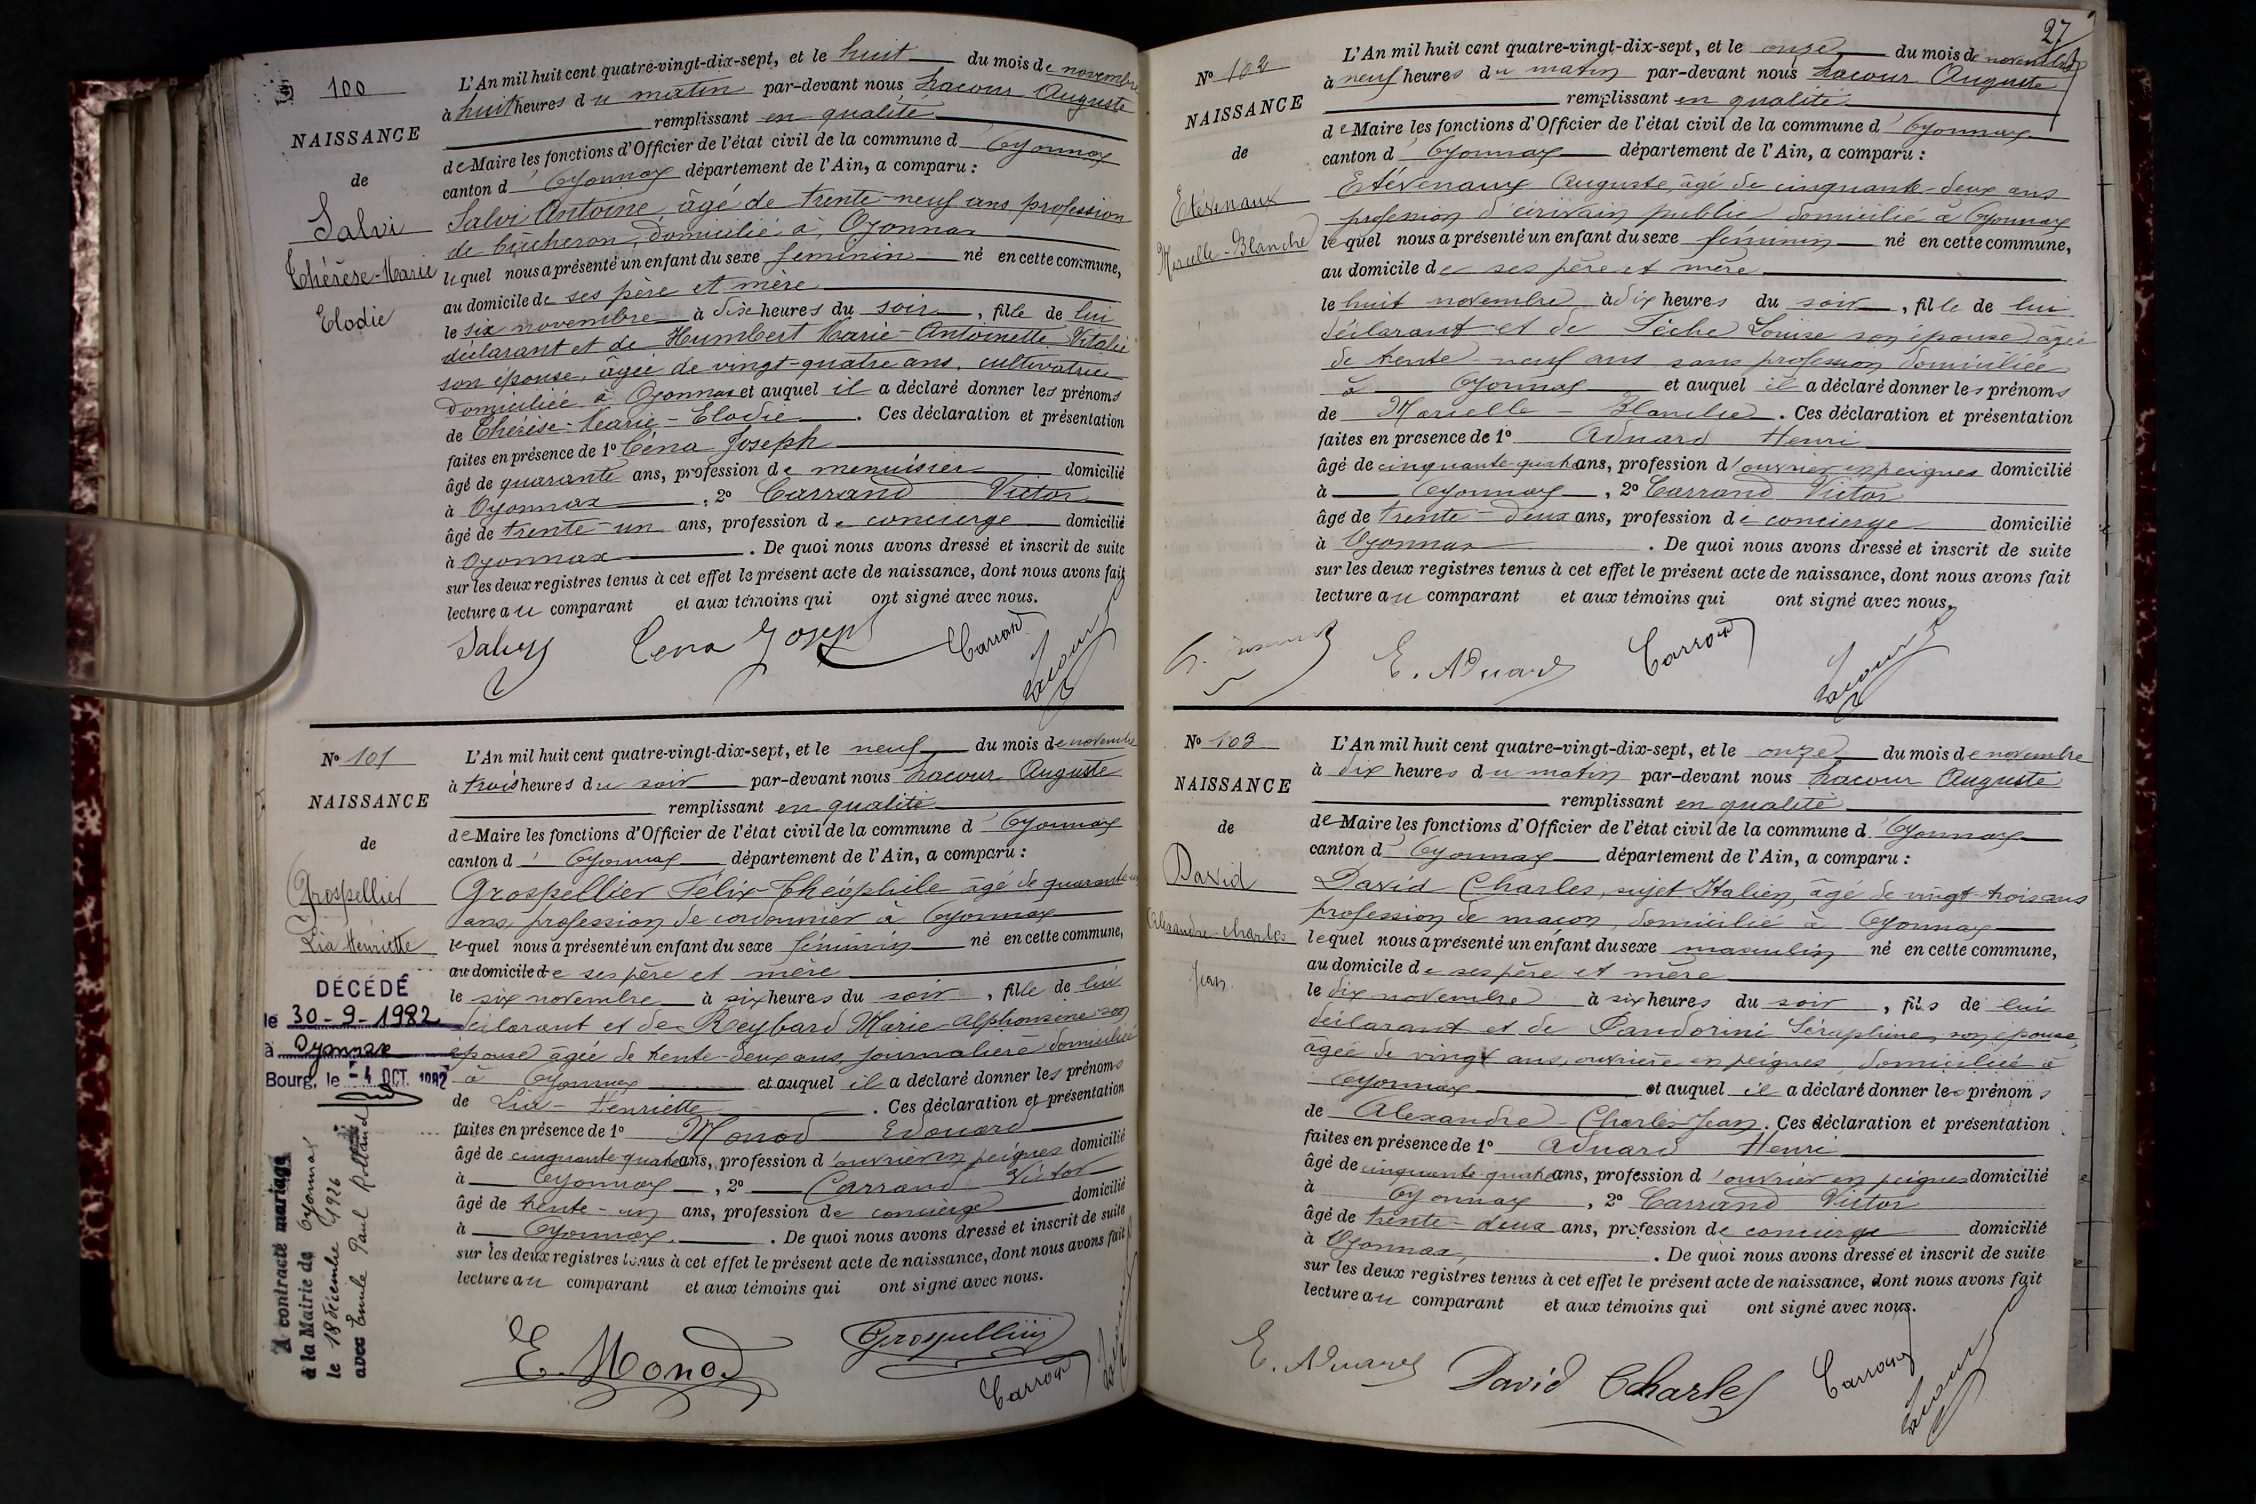 100
NAISSANCE
de
Salvi
Thérèse-Marie
Elodie
L'An mil huit cent quatre-vingt-dix-sept, et le huit du mois de novembre
à huit heures du matin par-devant nous Lacour Auguste
remplissant en qualité
de Maire les fonctions d'Officier de l'état civil de la commune d'Oyonnax
canton d'Oyonnax département de l'Ain, a comparu :
Salvi Antoine âgé de trente-neuf ans profession
de bûcheron, domicilié à Oyonnax
lequel nous a présenté un enfant du sexe féminin né en cette commune,
au domicile de ses père et mère
le six novembre à dix heures du soir, fille de lui
déclarant et de Humbert Marie-Antoinette Vitalie
son épouse, âgée de vingt-quatre ans, cultivatrice
domiciliée à Oyonnax et auquel il a déclaré donner les prénoms
de Thérèse-Marie-Elodie. Ces déclaration et présentation
faites en présence de 1º Céna Joseph
âgé de quarante ans, profession de menuisier domicilié
à Oyonnax, 2º Carrand Victor
âgé de trente-un ans, profession de concierge domicilié
à Oyonnax. De quoi nous avons dressé et inscrit de suite
sur les deux registres tenus à cet effet le présent acte de naissance, dont nous avons fait
lecture au comparant et aux témoins qui ont signé avec nous.
Cena Joseph Carrand Lacour
Nº 101
NAISSANCE
de
Grospellier
Lia Henriette
DÉCÉDÉ
le 30-9-1982
à Oyonnax
Bourg, le -4 OCT. 1982
A contracté mariage
à la Mairie de Oyonnax
le 18 décembre 1926
avec Emile Paul Rolland
L'An mil huit cent quatre-vingt-dix-sept, et le neuf du mois de novembre
à trois heures du soir par-devant nous Lacour Auguste
remplissant en qualité
de Maire les fonctions d'Officier de l'état civil de la commune d'Oyonnax
canton d'Oyonnax département de l'Ain, a comparu :
Grospellier Félix-Théophile âgé de quarante
ans, profession de cordonnier à Oyonnax
lequel nous a présenté un enfant du sexe féminin né en cette commune,
au domicile de ses père et mère
le six novembre à six heures du soir, fille de lui
déclarant et de Reybard Marie Alphonsine son
épouse âgée de trente-deux ans, journalière domiciliée
à Oyonnax et auquel il a déclaré donner les prénoms
de Lia-Henriette. Ces déclaration et présentation
faites en présence de 1º Monod Edouard
âgé de cinquante-quatre ans, profession d'ouvrier en peignes domicilié
à Oyonnax, 2º Carrand Victor
âgé de trente-un ans, profession de concierge domicilié
à Oyonnax. De quoi nous avons dressé et inscrit de suite
sur les deux registres tenus à cet effet le présent acte de naissance, dont nous avons fait
lecture au comparant et aux témoins qui ont signé avec nous.
E. Monod Grospellier Carrand Lacour
27
Nº 102
NAISSANCE
de
Etévenaux
Marcelle-Blanche
L'An mil huit cent quatre-vingt-dix-sept, et le onze du mois de novembre
à neuf heures du matin par-devant nous Lacour Auguste
remplissant en qualité
de Maire les fonctions d'Officier de l'état civil de la commune d'Oyonnax
canton d'Oyonnax département de l'Ain, a comparu :
Etévenaux Auguste, âgé de cinquante-deux ans
profession d'écrivain public domicilié à Oyonnax
lequel nous a présenté un enfant du sexe féminin né en cette commune,
au domicile de ses père et mère
le huit novembre à dix heures du soir, fille de lui
déclarant et de Louise son épouse âgée
de trente-neuf ans sans profession domiciliée
à Oyonnax et auquel il a déclaré donner les prénoms
de Marcelle-Blanche. Ces déclaration et présentation
faites en présence de 1º Aduard Henri
âgé de cinquante-quatre ans, profession d'ouvrier en peignes domicilié
à Oyonnax, 2º Carrand Victor
âgé de trente-deux ans, profession de concierge domicilié
à Oyonnax. De quoi nous avons dressé et inscrit de suite
sur les deux registres tenus à cet effet le présent acte de naissance, dont nous avons fait
lecture au comparant et aux témoins qui ont signé avec nous.
E. Aduard Carrand Lacour
Nº 103
NAISSANCE
de
David
Alexandre-Charles
Jean
L'An mil huit cent quatre-vingt-dix-sept, et le onze du mois de novembre
à dix heures du matin par-devant nous Lacour Auguste
remplissant en qualité
de Maire les fonctions d'Officier de l'état civil de la commune d'Oyonnax
canton d'Oyonnax département de l'Ain, a comparu :
David Charles, sujet Italien, âgé de vingt-trois ans
profession de maçon, domicilié à Oyonnax
lequel nous a présenté un enfant du sexe masculin né en cette commune,
au domicile de ses père et mère
le dix novembre à six heures du soir, fils de lui
déclarant et de Pandorini Séraphine, son épouse,
âgée de vingt ans, ouvrière en peignes, domiciliée à
Oyonnax et auquel il a déclaré donner les prénoms
de Alexandre-Charles-Jean. Ces déclaration et présentation
faites en présence de 1º Aduard Henri
âgé de cinquante-quatre ans, profession d'ouvrier en peignes domicilié
à Oyonnax, 2º Carrand Victor
âgé de trente-deux ans, profession de concierge domicilié
à Oyonnax. De quoi nous avons dressé et inscrit de suite
sur les deux registres tenus à cet effet le présent acte de naissance, dont nous avons fait
lecture au comparant et aux témoins qui ont signé avec nous.
E. Aduard David Charles Carrand Lacour